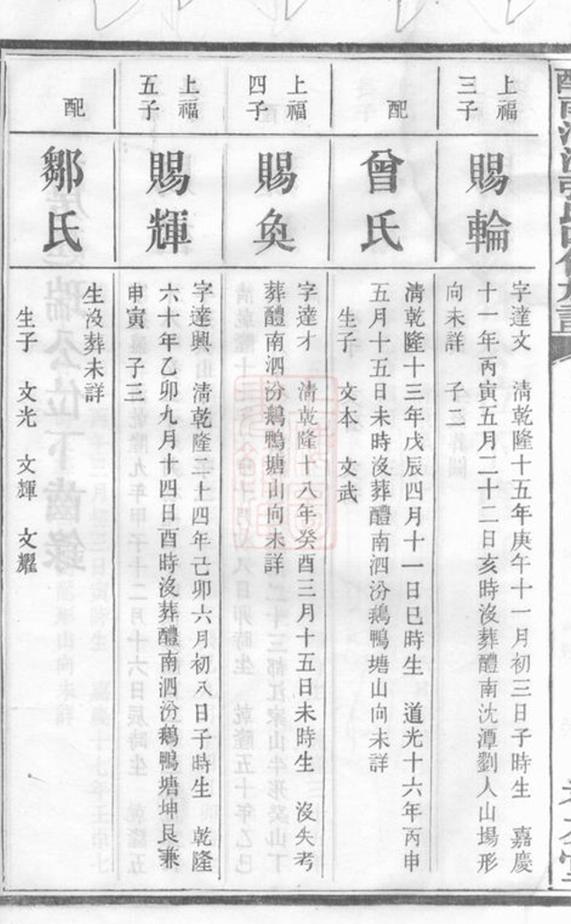 上福三子
賜輪
字達文 清乾隆十五年庚午十一月初三日子時生 嘉慶
十一年丙寅五月二十二日亥時沒葬醴南沈潭劉人山場形
向未詳 子二
配
曾氏
清乾隆十三年戊辰四月十一日巳時生 道光十六年丙申
五月十五日未時沒葬醴南泗汾鵝鴨塘山向未詳
生子 文本 文武
上福四子
賜奐
字達才 清乾隆十八年癸酉三月十五日未時生 沒失考
葬醴南泗汾鵝鴨塘山向未詳
上福五子
賜輝
字達興 清乾隆二十四年己卯六月初八日子時生 乾隆
六十年乙卯九月十四日酉時沒葬醴南泗汾鵝鴨塘坤艮兼
申寅 子三
配
鄒氏
生沒葬未詳
生子 文光 文輝 文耀